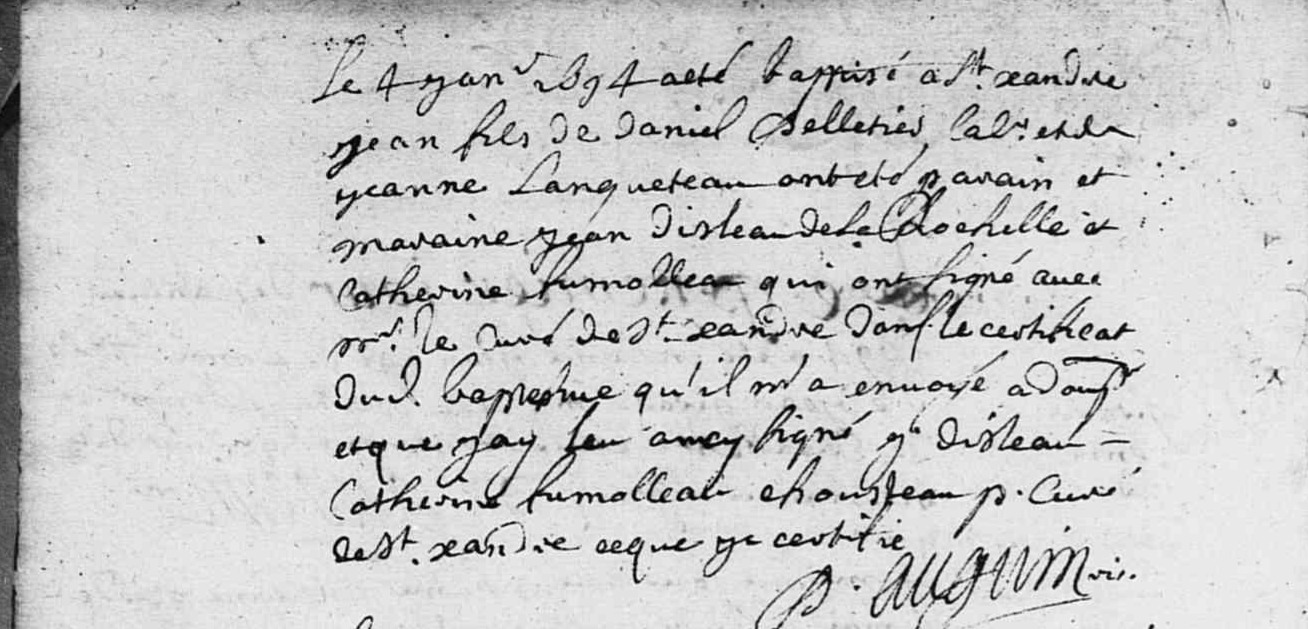 Le 4 yanr 1694 a eté baptisé a St. xandre
yean fils de daniel pelletier labr. et de
yeanne Lanqueteau ont eté parain et
maraine yean disleau de La Rochelle et
Catherine humolleau qui ont signé avec
mr. le curé de St. xandre dans le certificat
dud. baptesme qu'il m'a envoié a
et que yay leu ainsy signé disleau
Catherine humolleau chousteau p. Curé
de St. xandre ce que ye certifie
P. auguin vic.